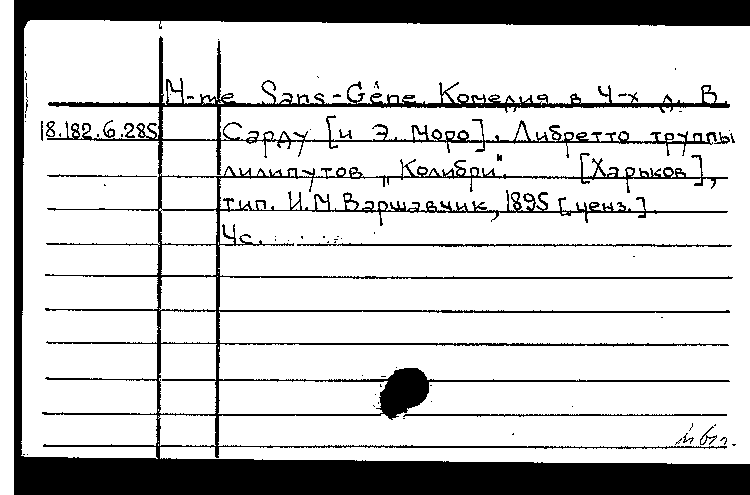 M-me Sans-Gêne Комедия в 4-х д. В.
18.182.6.285 Сарду [и Э. Моро]. Либретто труппы
лилипутов „Колибри". [Харьков],
тип. И.М.Варшавчик, 1895 [ценз.].
4с.